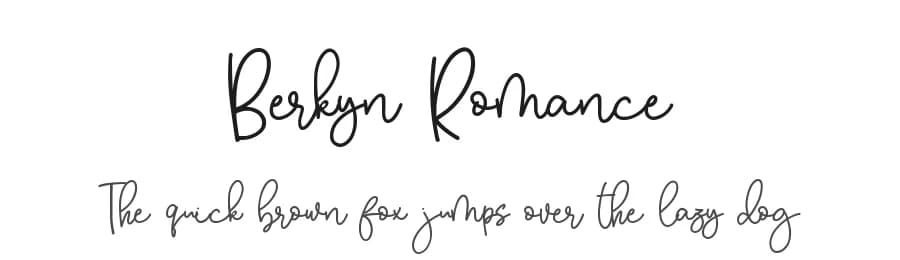 Berkyn Romance
The quick brown fox jumps over the lazy dog